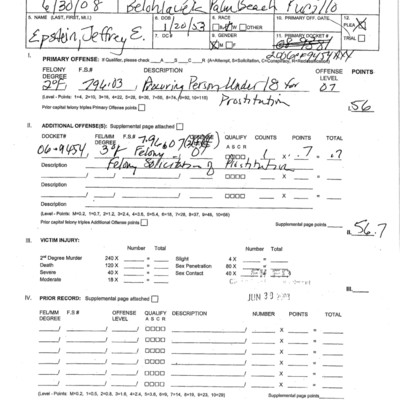 6/30/08 Belohlavek Palm Beach Pucillo
5. NAME (LAST, FIRST, M.I.) 6. DOB 8. RACE 10. PRIMARY OFF. DATE 12.
Epstein, Jeffrey E. 1/20/53 B W OTHER PLEA
7. DOC# 9. GENDER M F 11. PRIMARY DOCKET # TRIAL
I. PRIMARY OFFENSE: If Qualifier, please check A S C R (A=Attempt, S=Solicitation, C=Conspiracy, R=Reclassification)
FELONY DEGREE F.S.# DESCRIPTION OFFENSE LEVEL POINTS
2°F 796.03 Procuring Person Under 18 for Prostitution 07
I. 56
Prior capital felony triples Primary Offense points
II. ADDITIONAL OFFENSE(S): Supplemental page attached
DOCKET# FEL/MM DEGREE F.S.# OFFENSE LEVEL QUALIFY A S C R COUNTS POINTS TOTAL
06-9454 3°F 796.07 1 X .7 = .7
Description Felony Solicitation of Prostitution
Description
(Level - Points: M=0.2, 1=0.7, 2=1.2, 3=2.4, 4=3.6, 5=5.4, 6=18, 7=28, 8=37, 9=46, 10=58)
Prior capital felony triples Additional Offense points Supplemental page points
II. 56.7
III. VICTIM INJURY:
Number Total Number Total
2nd Degree Murder 240 X = Slight 4 X =
Death 120 X = Sex Penetration 80 X =
Severe 40 X = Sex Contact 40 X =
Moderate 18 X =
JUN 30
IV. PRIOR RECORD: Supplemental page attached
FEL/MM DEGREE F.S.# OFFENSE LEVEL QUALIFY A S C R DESCRIPTION NUMBER POINTS TOTAL
X =
X =
X =
X =
X =
X =
(Level - Points: M=0.2, 1=0.5, 2=0.8, 3=1.6, 4=2.4, 5=3.6, 6=9, 7=14, 8=19, 9=23, 10=29)